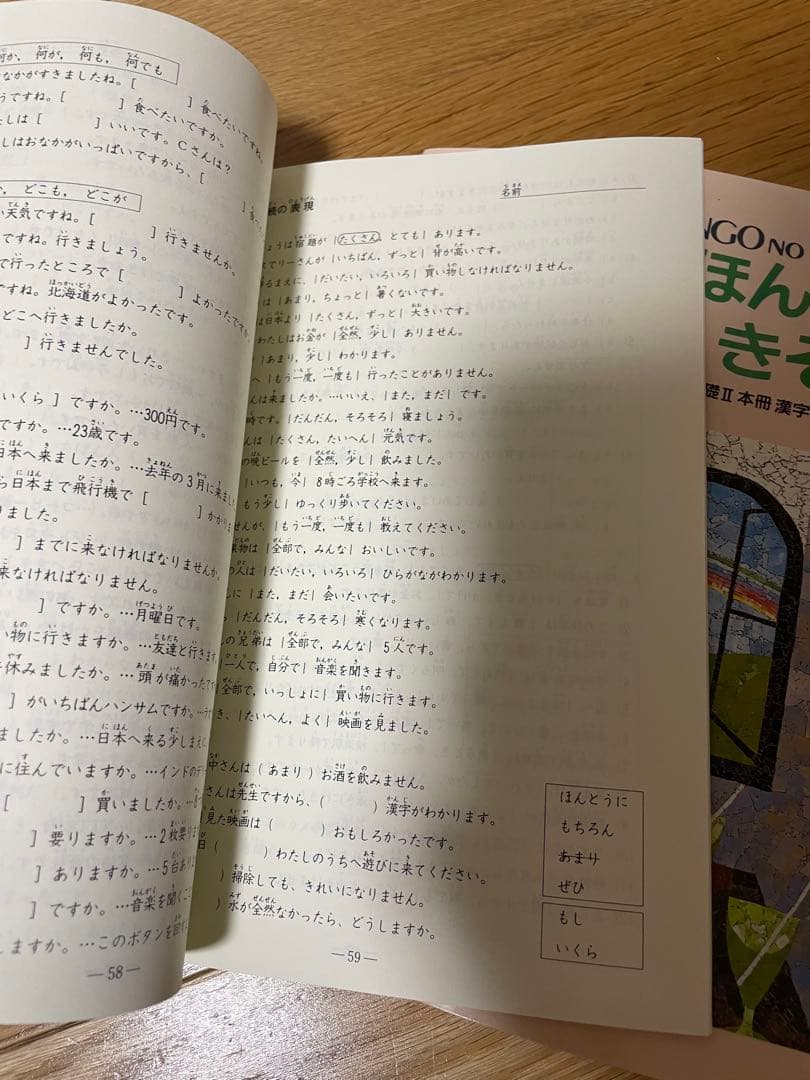 何か, 何が, 何も, 何でも
なかがすきましたね。[ ] 食べたいですね。
うですね。[ ] 食べたいですか。
しは [ ] いいです。Cさんは？
しはおなかがいっぱいですから、[ ] 食べ
どこも, どこが
天気ですね。[ ] 行きませんか。
ですね。行きましょう。
で行ったところで [ ] よかったですか。
ですね。北海道がよかったです。
どこへ行きましたか。
] 行きませんでした。
いくら ] ですか。…300円です。
ですか。…23歳です。
日本へ来ましたか。…去年の3月に来ました
ら日本まで飛行機で [ ] かかり
りました。
] までに来なければなりませんか。
来なければなりません。
] ですか。…月曜日です。
い物に行きますか。…友達と行きます。
休みましたか。…頭が痛かったです
] がいちばんハンサムですか。
ましたか。…日本へ来る少しまえに
に住んでいますか。…インドのデ
[ ] 買いましたか。
] 要りますか。…2枚要り
] ありますか。…5台あり
] ですか。…音楽を聞くこ
しますか。…このボタンを回
—58—
続の表現
名前
ょうは宿題が |たくさん, とても| あります。
テリーさんが |いちばん, ずっと| 背が高いです。
るまえに、|だいたい, いろいろ| 買い物しなければなりません。
は |あまり, ちょっと| 暑くないです。
は日本より |たくさん, ずっと| 大きいです。
わたしはお金が |全然, 少し| ありません。
|あまり, 少し| わかります。
へ |もう一度, 一度も| 行ったことがありません。
んは来ましたか。…いいえ、|また, まだ| です。
時です。|だんだん, そろそろ| 寝ましょう。
んは |たくさん, たいへん| 元気です。
の晩ビールを |全然, 少し| 飲みました。
|いつも, 今| 8時ごろ学校へ来ます。
もう少し| ゆっくり歩いてください。
せんが、|もう一度, 一度も| 教えてください。
果物は |全部で, みんな| おいしいです。
の人は |だいたい, いろいろ| ひらがながわかります。
んに |また, まだ| 会いたいです。
ら |だんだん, そろそろ| 寒くなります。
んの兄弟は |全部で, みんな| 5人です。
一人で, 自分で| 音楽を聞きます。
|全部で, いっしょに| 買い物に行きます。
き、|たいへん, よく| 映画を見ました。
中さんは ( あまり ) お酒を飲みません。
さんは先生ですから、( ) 漢字がわかります。
見た映画は ( ) おもしろかったです。
日 ( ) わたしのうちへ遊びに来てください。
) 掃除しても、きれいになりません。
) 水が全然なかったら、どうしますか。
ほんとうに
もちろん
あまり
ぜひ
もし
いくら
—59—
NGO NO
ほん
きそ
礎II 本冊 漢字